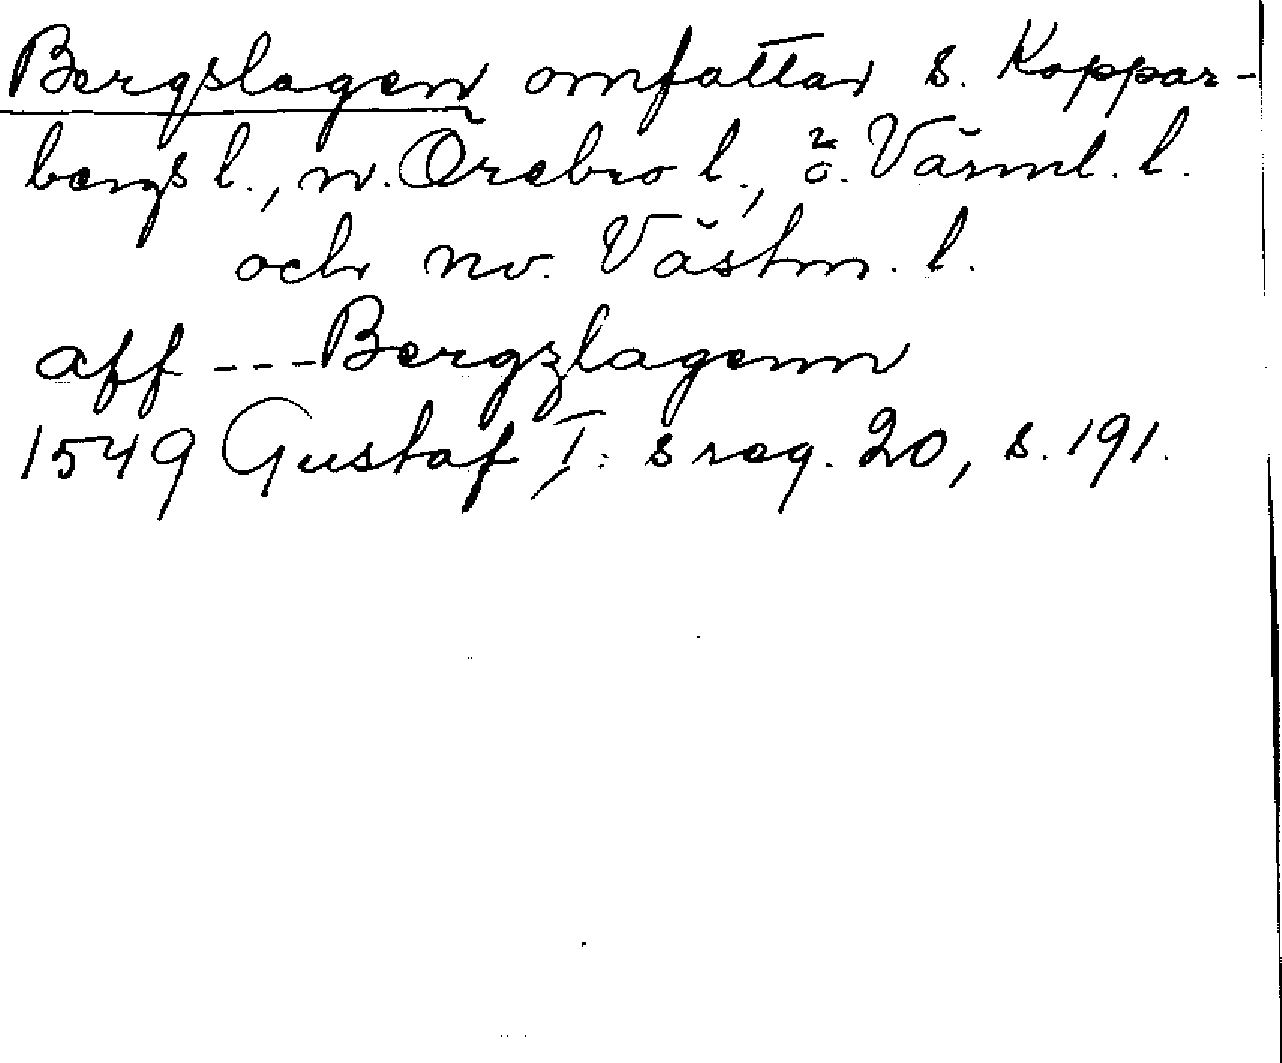 Bergslagen omfattar s. Koppar-
bergs l., n. Örebro l., ö. Värml. l.
och nv. Västm. l.
aff --- Bergzlagenn
1549 Gustaf I:s reg. 20, s. 191.